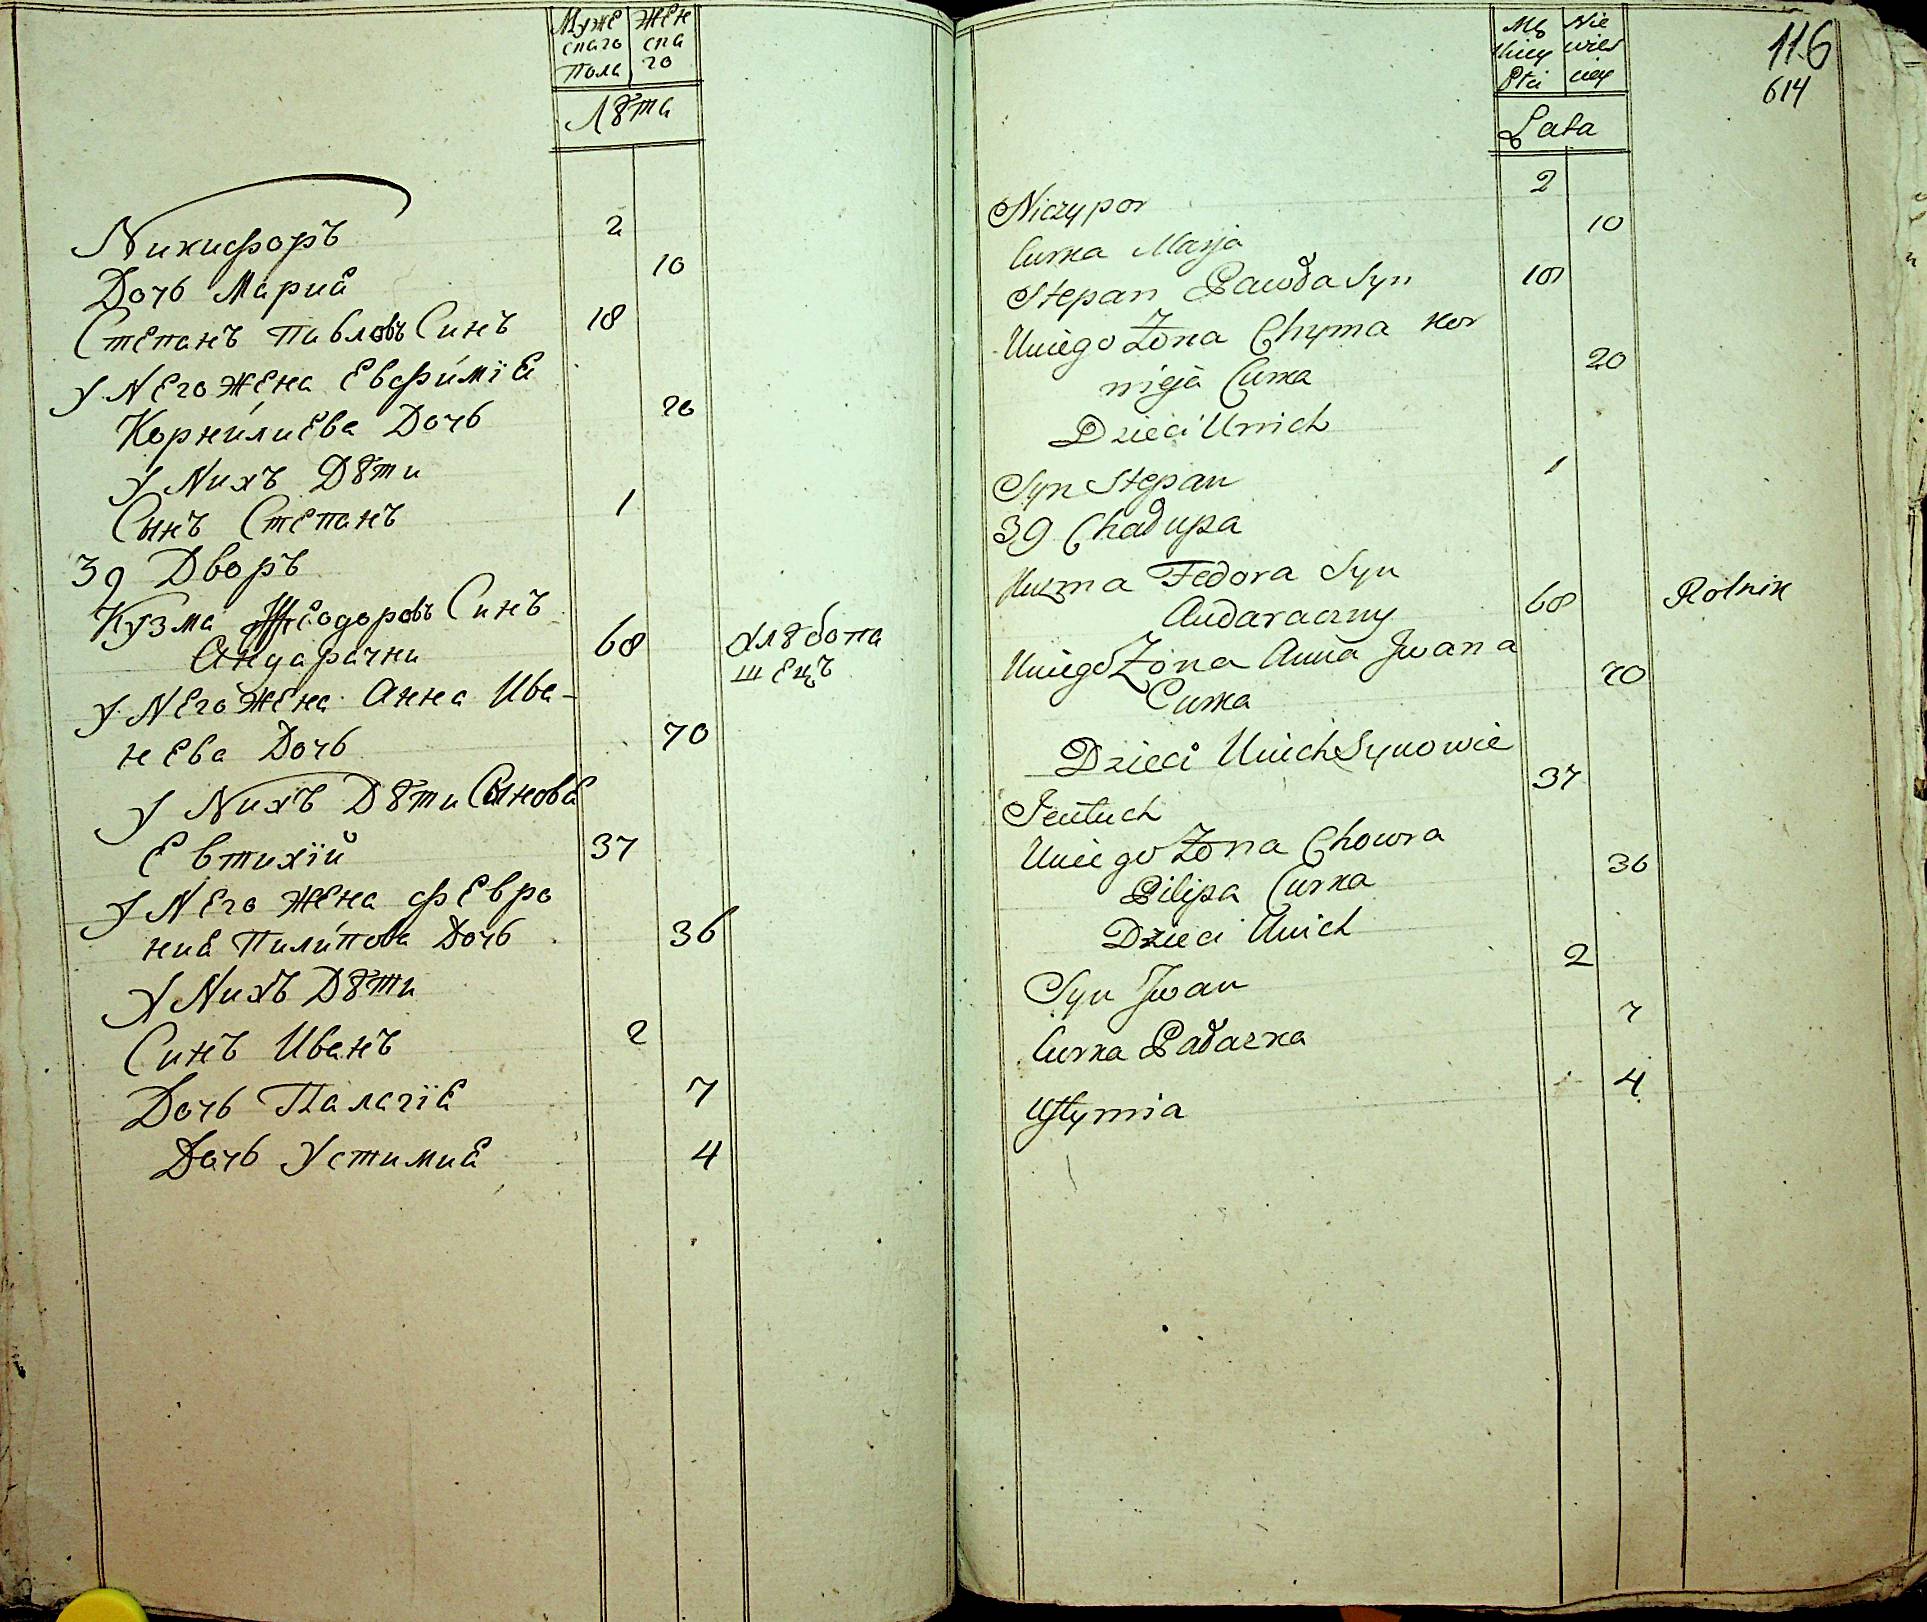 Муже
скаго
Пола
Жен
ска
го
Лѣта
Никифоръ 2
Дочь Мариа 10
Степанъ Павловъ Синъ 18
У Него Жена Евфиміа
Корнилиева Дочь 20
У Нихъ Дѣти
Сынъ Степанъ 1
39 Дворъ
Кузма Феодоровъ Синъ
Андарачни 68 Хлѣбопа
шецъ
У Него Жена Анна Ива-
нева Дочь 70
У Нихъ Дѣти Синова
Евтихій 37
У Него Жена Февро
ниа Пилипова Дочь 36
У Нихъ Дѣти
Синъ Иванъ 2
Дочь Палагіа 7
Дочь Устимиа 4
116
614
Mę
skiey
Płci
Nie
wies
ciey
Lata
Niczypor 2
Curka Marja 10
Stepan Pawła Syn 18
Uniego Żona Chyma Kor
nieja Curka 20
Dzieci Unich
Syn Stepan 1
39 Chałupa
Kuzma Fedora Syn
Audaraczny 68 Rolnik
Uniego Żona Anna Jwana
Curka 70
Dzieci Unich Synowie
Jeutuch 37
Uniego Żona Chowra
Pilipa Curka 36
Dzieci Unich
Syn Jwan 2
Curka Pałaszka 7
Ustymia 4